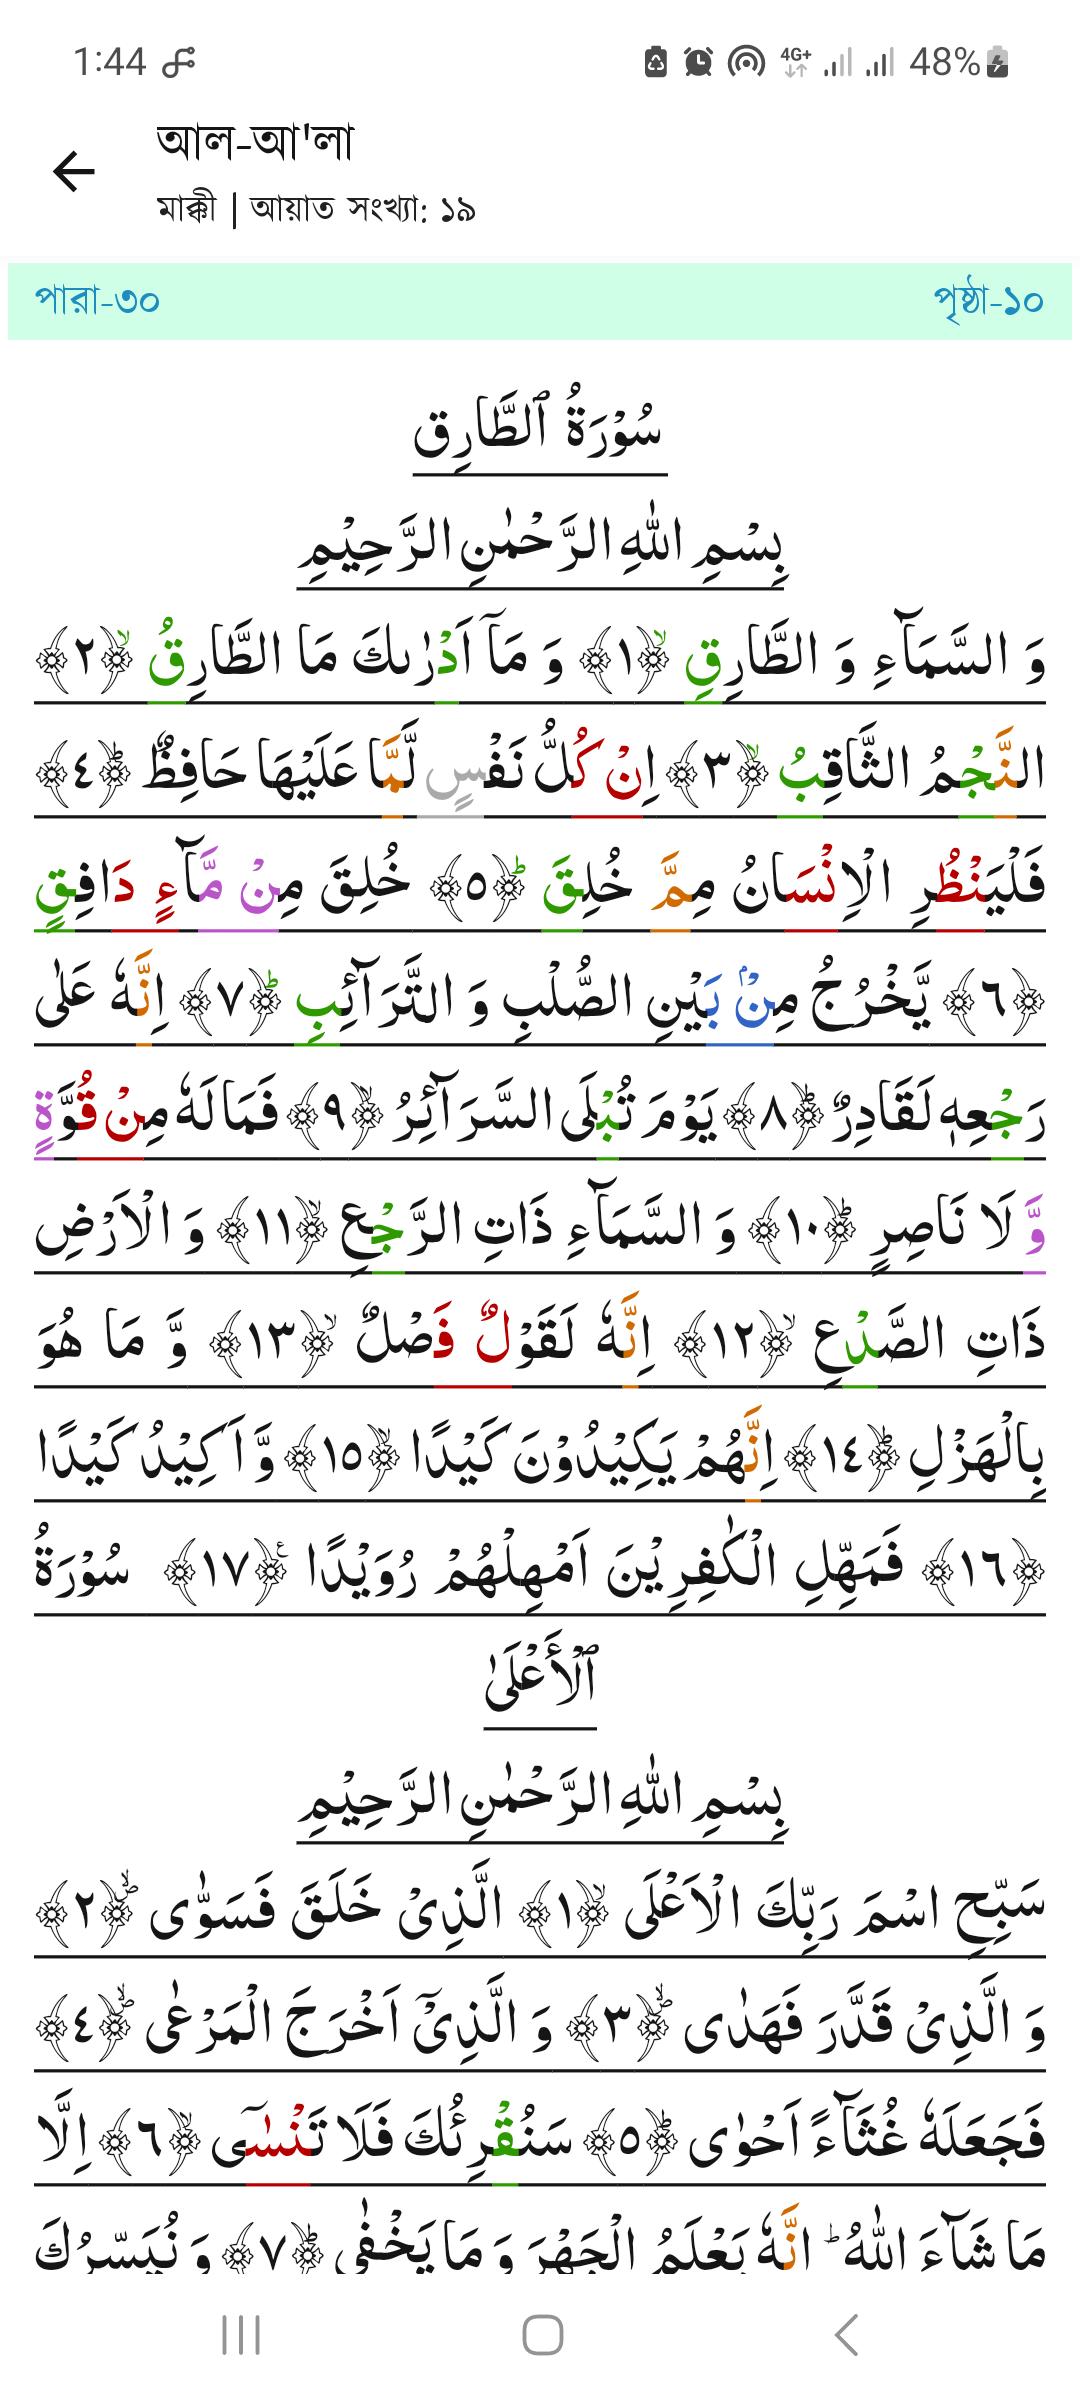 1:44
4G+ 48%
আল-আ'লা
মাক্কী | আয়াত সংখ্যা: ১৯
পারা-৩০ পৃষ্ঠা-১০
سُوْرَةُ ٱلطَّارِق
بِسْمِ اللهِ الرَّحْمٰنِ الرَّحِيْمِ
وَ السَّمَآءِ وَ الطَّارِقِ ۙ﴿١﴾ وَ مَاۤ اَدْرٰىكَ مَا الطَّارِقُ ۙ﴿٢﴾
النَّجْمُ الثَّاقِبُ ۙ﴿٣﴾ اِنْ كُلُّ نَفْسٍ لَّمَّا عَلَيْهَا حَافِظٌ ؕ﴿٤﴾
فَلْيَنْظُرِ الْاِنْسَانُ مِمَّ خُلِقَ ؕ﴿٥﴾ خُلِقَ مِنْ مَّآءٍ دَافِقٍ
﴿٦﴾ يَّخْرُجُ مِنْۢ بَيْنِ الصُّلْبِ وَ التَّرَآئِبِ ؕ﴿٧﴾ اِنَّهٗ عَلٰى
رَجْعِهٖ لَقَادِرٌ ؕ﴿٨﴾ يَوْمَ تُبْلَى السَّرَآئِرُ ۙ﴿٩﴾ فَمَا لَهٗ مِنْ قُوَّةٍ
وَّ لَا نَاصِرٍ ؕ﴿١٠﴾ وَ السَّمَآءِ ذَاتِ الرَّجْعِ ۙ﴿١١﴾ وَ الْاَرْضِ
ذَاتِ الصَّدْعِ ۙ﴿١٢﴾ اِنَّهٗ لَقَوْلٌ فَصْلٌ ۙ﴿١٣﴾ وَّ مَا هُوَ
بِالْهَزْلِ ؕ﴿١٤﴾ اِنَّهُمْ يَكِيْدُوْنَ كَيْدًا ۙ﴿١٥﴾ وَّ اَكِيْدُ كَيْدًا
﴿١٦﴾ فَمَهِّلِ الْكٰفِرِيْنَ اَمْهِلْهُمْ رُوَيْدًا ﴿١٧﴾ سُوْرَةُ
ٱلْأَعْلَىٰ
بِسْمِ اللهِ الرَّحْمٰنِ الرَّحِيْمِ
سَبِّحِ اسْمَ رَبِّكَ الْاَعْلَى ۙ﴿١﴾ الَّذِيْ خَلَقَ فَسَوّٰى ۪ۙ﴿٢﴾
وَ الَّذِيْ قَدَّرَ فَهَدٰى ۪ۙ﴿٣﴾ وَ الَّذِيْۤ اَخْرَجَ الْمَرْعٰى ۪ۙ﴿٤﴾
فَجَعَلَهٗ غُثَآءً اَحْوٰى ؕ﴿٥﴾ سَنُقْرِئُكَ فَلَا تَنْسٰۤى ۙ﴿٦﴾ اِلَّا
مَا شَآءَ اللهُ ؕ اِنَّهٗ يَعْلَمُ الْجَهْرَ وَ مَا يَخْفٰى ؕ﴿٧﴾ وَ نُيَسِّرُكَ